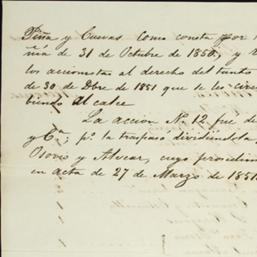 Piña y Cuevas como consta por
nia de 31 de Octubre de 1850, y
los accionistas al derecho del tanto
de 30 de Dbre de 1851 que se les
biendo al calce
La accion Nº 12 fue de
y Cª, pª la traspasó
Osorio y Alvear, cuyo
en acta de 27 de Marzo de 1851